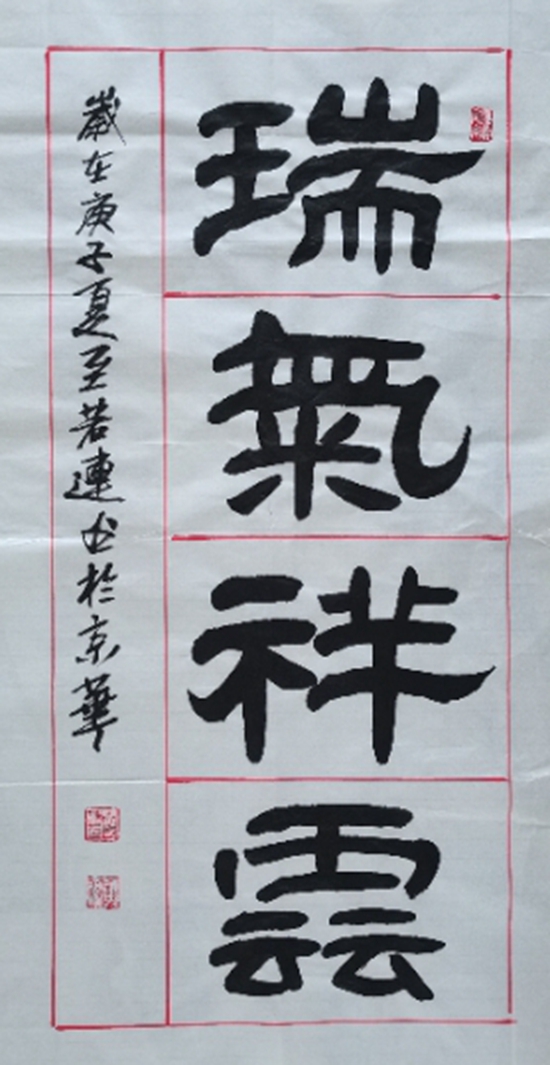 瑞氣祥雲
歲在庚子夏至若連书於京華